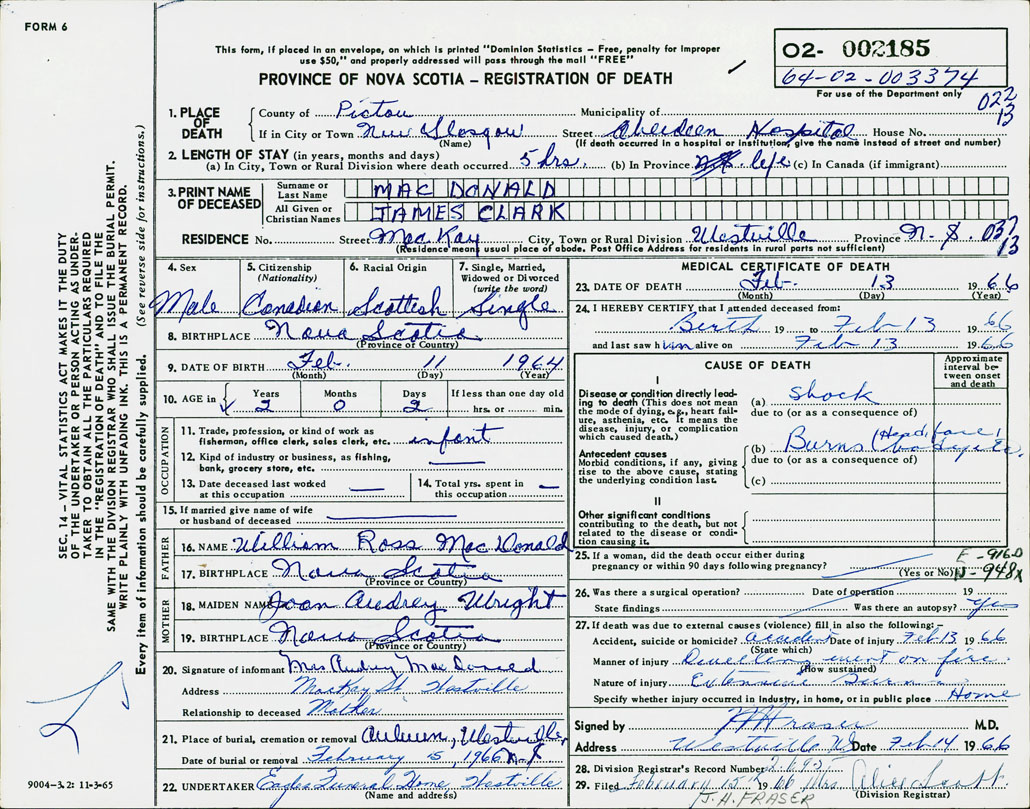 FORM 6
This form, if placed in an envelope, on which is printed "Dominion Statistics – Free, penalty for improper
use $50," and properly addressed will pass through the mail "FREE"
PROVINCE OF NOVA SCOTIA – REGISTRATION OF DEATH
02- 002185
64-02-003374
For use of the Department only
022
13
1. PLACE OF DEATH
County of Pictou Municipality of
If in City or Town New Glasgow Street Aberdeen Hospital House No.
(Name) (If death occurred in a hospital or institution, give the name instead of street and number)
2. LENGTH OF STAY (in years, months and days)
(a) In City, Town or Rural Division where death occurred 5 hrs. (b) In Province life (c) In Canada (if immigrant)
3. PRINT NAME OF DECEASED
Surname or Last Name MAC DONALD
All Given or Christian Names JAMES CLARK
RESIDENCE No. Street MacKay City, Town or Rural Division Westville Province N.S. 037
13
(Residence means usual place of abode. Post Office Address for residents in rural parts not sufficient)
4. Sex 5. Citizenship (Nationality) 6. Racial Origin 7. Single, Married, Widowed or Divorced (write the word)
Male Canadian Scottish Single
8. BIRTHPLACE Nova Scotia
(Province or Country)
9. DATE OF BIRTH Feb. 11 1964
(Month) (Day) (Year)
10. AGE in Years Months Days If less than one day old
2 0 2 hrs. or min.
OCCUPATION
11. Trade, profession, or kind of work as
fisherman, office clerk, sales clerk, etc. infant
12. Kind of industry or business, as fishing,
bank, grocery store, etc.
13. Date deceased last worked
at this occupation
14. Total yrs. spent in
this occupation
15. If married give name of wife
or husband of deceased
FATHER
16. NAME William Ross MacDonald
17. BIRTHPLACE Nova Scotia
(Province or Country)
MOTHER
18. MAIDEN NAME Joan Audrey Wright
19. BIRTHPLACE Nova Scotia
(Province or Country)
20. Signature of informant Mrs Audrey MacDonald
Address MacKay St. Westville
Relationship to deceased Mother
21. Place of burial, cremation or removal Auburn, Westville, N.S
Date of burial or removal February 15, 1966
22. UNDERTAKER Eagles Funeral Home Westville
(Name and address)
MEDICAL CERTIFICATE OF DEATH
23. DATE OF DEATH Feb. 13 1966
(Month) (Day) (Year)
24. I HEREBY CERTIFY that I attended deceased from:
Birth 19 to Feb 13 1966
and last saw him alive on Feb 13 1966
CAUSE OF DEATH
Approximate interval between onset and death
I
Disease or condition directly leading to death (This does not mean
the mode of dying, e.g., heart failure, asthenia, etc. It means the
disease, injury, or complication
which caused death.)
(a) Shock
due to (or as a consequence of)
Antecedent causes
Morbid conditions, if any, giving
rise to the above cause, stating
the underlying condition last.
(b) Burns (Head, face,
due to (or as a consequence of)
(c)
II
Other significant conditions
contributing to the death, but not
related to the disease or condition causing it.
25. If a woman, did the death occur either during
pregnancy or within 90 days following pregnancy?
(Yes or No)
E-916.0
N-948x
26. Was there a surgical operation? Date of operation 19
State findings Was there an autopsy? Yes
27. If death was due to external causes (violence) fill in also the following:–
Accident, suicide or homicide? accident Date of injury Feb 13 1966
(State which)
Manner of injury Dwelling went on fire.
(How sustained)
Nature of injury Extensive Burns
Specify whether injury occurred in industry, in home, or in public place Home
Signed by Fraser M.D.
Address Westville NS Date Feb 14 1966
28. Division Registrar's Record Number
29. Filed February 15th 1966 Mrs Alice Scott
(Division Registrar)
J.H. FRASER
SEC. 14 – VITAL STATISTICS ACT MAKES IT THE DUTY
OF THE UNDERTAKER OR PERSON ACTING AS UNDER-
TAKER TO OBTAIN ALL THE PARTICULARS REQUIRED
IN THE "REGISTRATION OF DEATH" AND TO FILE THE
SAME WITH THE DIVISION REGISTRAR WHO SHALL ISSUE THE BURIAL PERMIT.
WRITE PLAINLY WITH UNFADING INK. THIS IS A PERMANENT RECORD.
Every item of information should be carefully supplied. (See reverse side for instructions.)
9004–3.2: 11-3-65